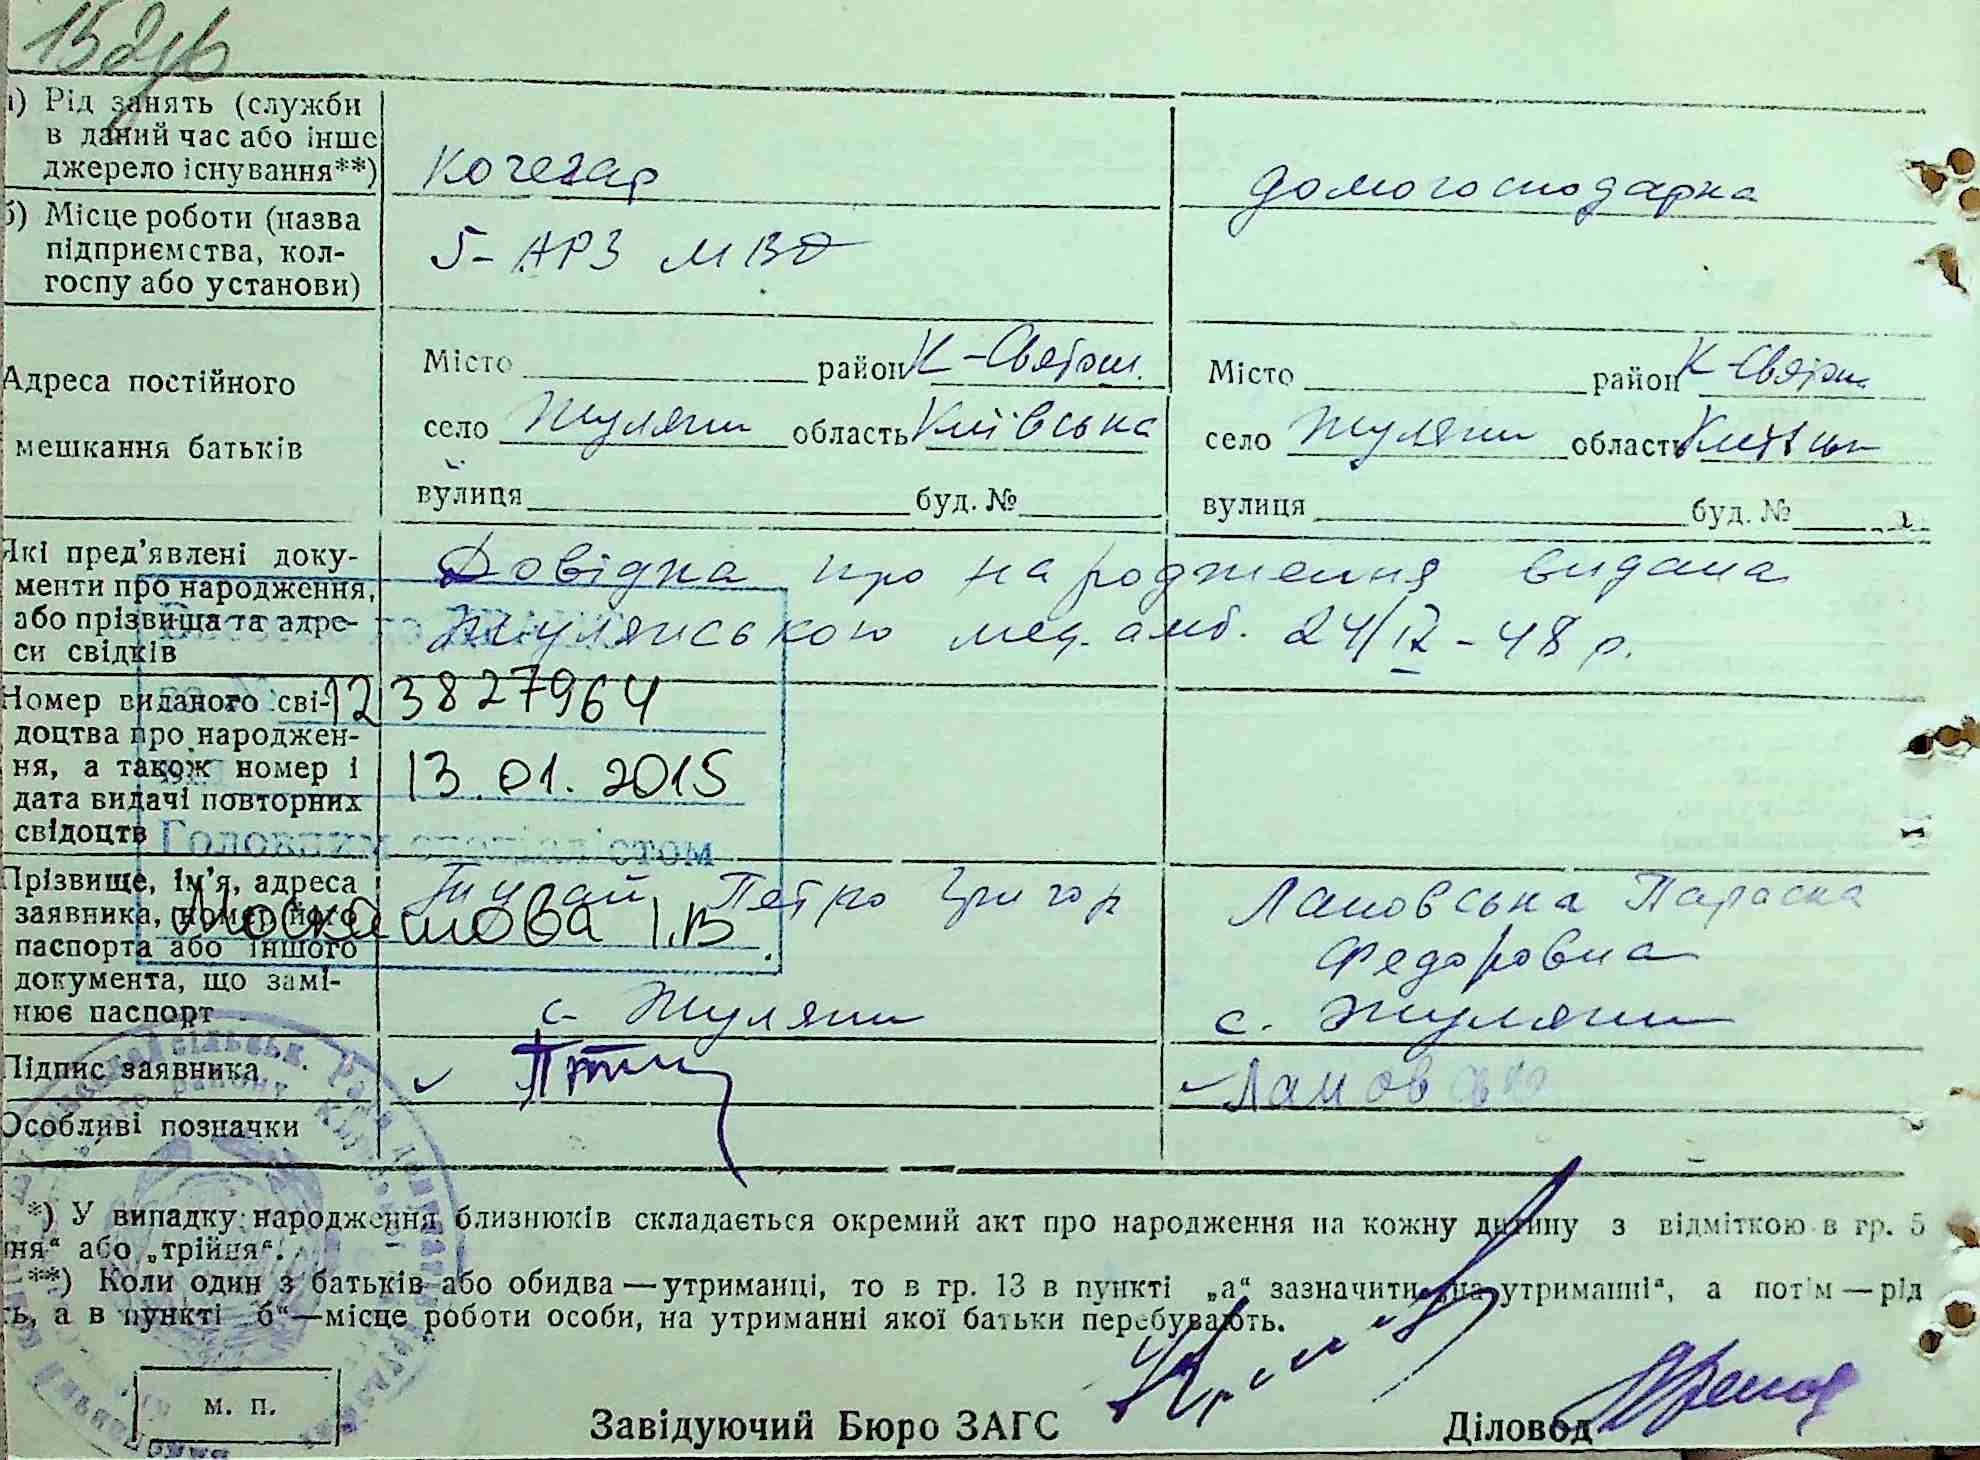 а) Рід занять (служби
в даний час або інше
джерело існування**)
кочегар
домогосподарка
б) Місце роботи (назва
підприємства, кол-
госпу або установи)
5-АРЗ МВД
Адреса постійного
мешкання батьків
Місто район К-Святош.
село Жуляни область Київська
вулиця буд. №
Місто район К-Святош.
село Жуляни область
вулиця буд. №
Які пред'явлені доку-
менти про народження,
або прізвища та адре-
си свідків
Довідка про народження видана
Жулянською мед. амб. 24/IX-48 р.
Номер виданого сві-
доцтва про народжен-
ня, а також номер і
дата видачі повторних
свідоцтв
123827964
13.01.2015
Головним спеціалістом
Москальова І.В.
Прізвище, ім'я, адреса
заявника, номер його
паспорта або іншого
документа, що замі-
нює паспорт
Петро Григор
с. Жуляни
Лановська Параска
Федоровна
с. Жуляни
Підпис заявника
Лановська
Особливі позначки
*) У випадку народження близнюків складається окремий акт про народження на кожну дитину з відміткою в гр. 5
ня“ або „трійня“.
**) Коли один з батьків або обидва — утриманці, то в гр. 13 в пункті „а“ зазначити „на утриманні“, а потім — рід
ть, а в пункті „б“ — місце роботи особи, на утриманні якої батьки перебувають.
м. п.
Завідуючий Бюро ЗАГС
Діловод